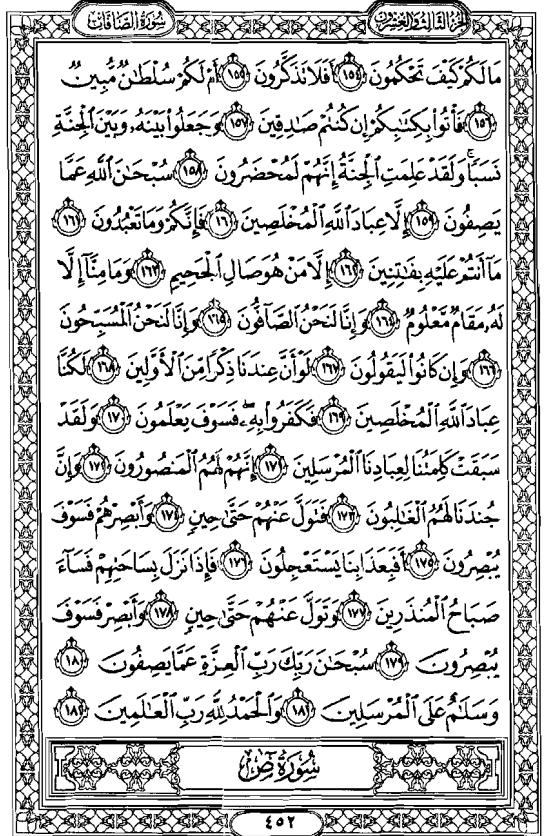 سُورَةُ الصَّافَّاتِ
الجُزءُ الثَّالِثُ وَالعِشْرُونَ
مَالَكُمْ كَيْفَ تَحْكُمُونَ ١٥٤ أَفَلَا تَذَكَّرُونَ ١٥٥ أَمْ لَكُمْ سُلْطَٰنٌ مُّبِينٌ
١٥٦ فَأْتُوا۟ بِكِتَٰبِكُمْ إِن كُنتُمْ صَٰدِقِينَ ١٥٧ وَجَعَلُوا۟ بَيْنَهُۥ وَبَيْنَ ٱلْجِنَّةِ
نَسَبًا ۚ وَلَقَدْ عَلِمَتِ ٱلْجِنَّةُ إِنَّهُمْ لَمُحْضَرُونَ ١٥٨ سُبْحَٰنَ ٱللَّهِ عَمَّا
يَصِفُونَ ١٥٩ إِلَّا عِبَادَ ٱللَّهِ ٱلْمُخْلَصِينَ ١٦٠ فَإِنَّكُمْ وَمَا تَعْبُدُونَ ١٦١
مَآ أَنتُمْ عَلَيْهِ بِفَٰتِنِينَ ١٦٢ إِلَّا مَنْ هُوَ صَالِ ٱلْجَحِيمِ ١٦٣ وَمَا مِنَّآ إِلَّا
لَهُۥ مَقَامٌ مَّعْلُومٌ ١٦٤ وَإِنَّا لَنَحْنُ ٱلصَّآفُّونَ ١٦٥ وَإِنَّا لَنَحْنُ ٱلْمُسَبِّحُونَ
١٦٦ وَإِن كَانُوا۟ لَيَقُولُونَ ١٦٧ لَوْ أَنَّ عِندَنَا ذِكْرًا مِّنَ ٱلْأَوَّلِينَ ١٦٨ لَكُنَّا
عِبَادَ ٱللَّهِ ٱلْمُخْلَصِينَ ١٦٩ فَكَفَرُوا۟ بِهِۦ ۖ فَسَوْفَ يَعْلَمُونَ ١٧٠ وَلَقَدْ
سَبَقَتْ كَلِمَتُنَا لِعِبَادِنَا ٱلْمُرْسَلِينَ ١٧١ إِنَّهُمْ لَهُمُ ٱلْمَنصُورُونَ ١٧٢ وَإِنَّ
جُندَنَا لَهُمُ ٱلْغَٰلِبُونَ ١٧٣ فَتَوَلَّ عَنْهُمْ حَتَّىٰ حِينٍ ١٧٤ وَأَبْصِرْهُمْ فَسَوْفَ
يُبْصِرُونَ ١٧٥ أَفَبِعَذَابِنَا يَسْتَعْجِلُونَ ١٧٦ فَإِذَا نَزَلَ بِسَاحَتِهِمْ فَسَآءَ
صَبَاحُ ٱلْمُنذَرِينَ ١٧٧ وَتَوَلَّ عَنْهُمْ حَتَّىٰ حِينٍ ١٧٨ وَأَبْصِرْ فَسَوْفَ
يُبْصِرُونَ ١٧٩ سُبْحَٰنَ رَبِّكَ رَبِّ ٱلْعِزَّةِ عَمَّا يَصِفُونَ ١٨٠
وَسَلَٰمٌ عَلَى ٱلْمُرْسَلِينَ ١٨١ وَٱلْحَمْدُ لِلَّهِ رَبِّ ٱلْعَٰلَمِينَ ١٨٢
سُورَةُ صٓ
٤٥٢